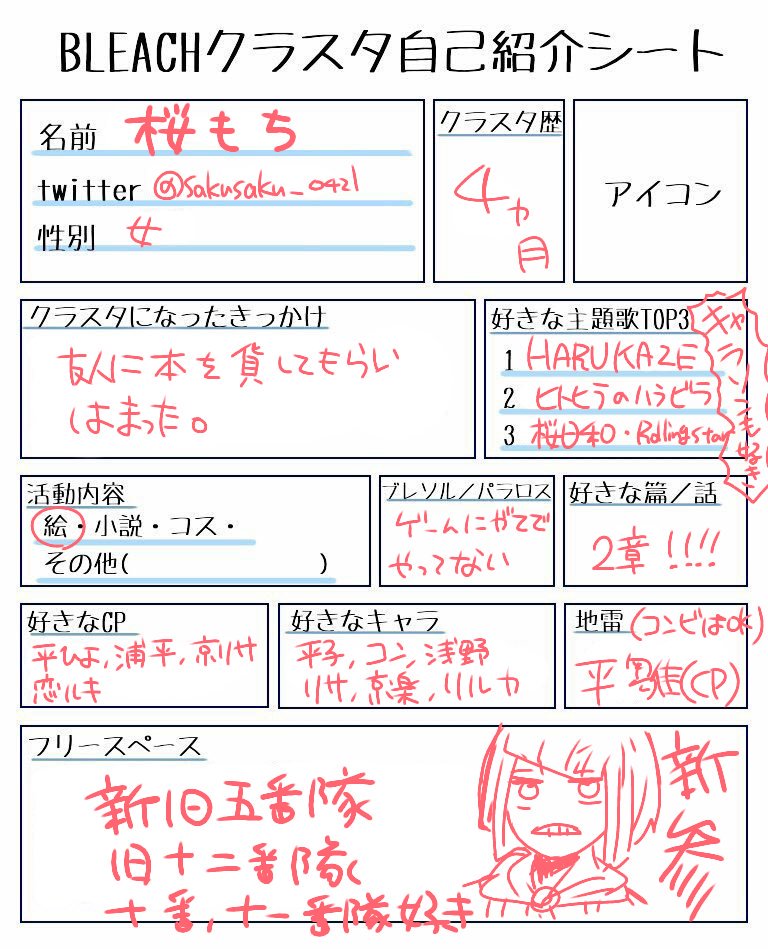 BLEACHクラスタ自己紹介シート
名前 桜もち
twitter @sakusaku_0421
性別 女
クラスタ歴
4ヵ月
アイコン
クラスタになったきっかけ
友人に本を貸してもらい
はまった。
好きな主題歌TOP3
1 HARUKAZE
2 ヒトヒラのハナビラ
3 桜日和・Rolling star
キャラソンも好き
活動内容
絵・小説・コス・
その他( )
ブレソル/パラロス
ゲームにがてで
やってない
好きな篇/話
2章!!!!
好きなCP
平ひよ,浦平,京リサ
恋ルキ
好きなキャラ
平子,コン,浅野
リサ,京楽,リルカ
地雷(コンビはOK)
平雛(CP)
フリースペース
新旧五番隊
旧十二番隊
十番,十一番隊好き
新参